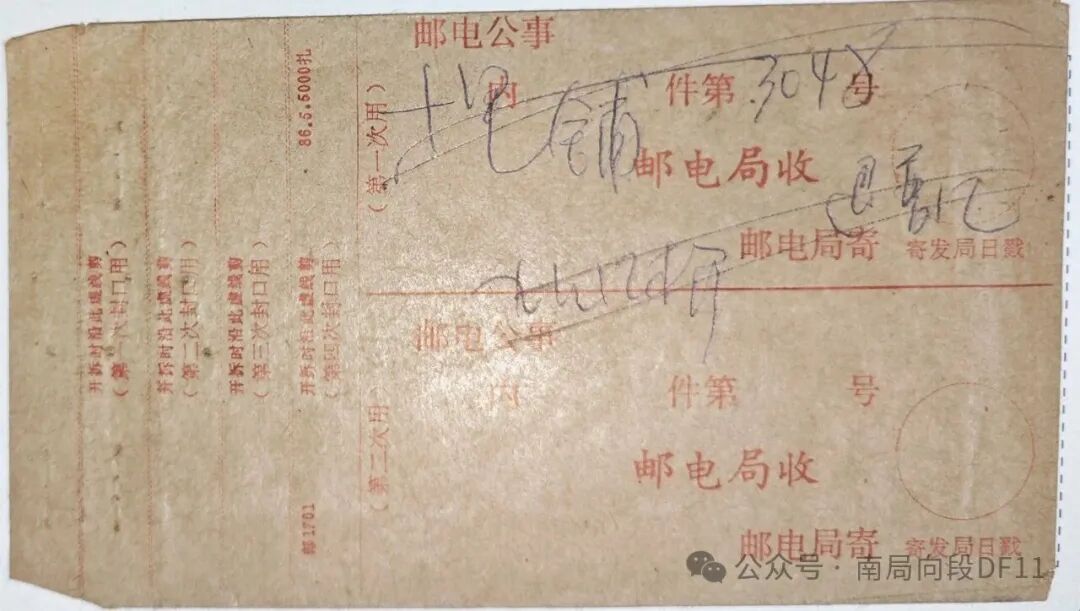 邮电公事
内 件第 3048 号
邮电局收
邮电局寄 寄发局日戳
(第一次用)
邮电公事
内 件第 号
邮电局收
邮电局寄 寄发局日戳
(第二次用)
86.5.5000扎
开拆时沿此虚线剪
(第四次封口用)
邮1701
开拆时沿此虚线剪
(第三次封口用)
开拆时沿此虚线剪
(第二次封口用)
开拆时沿此虚线剪
(第一次封口用)
公众号 · 南局向段DF11